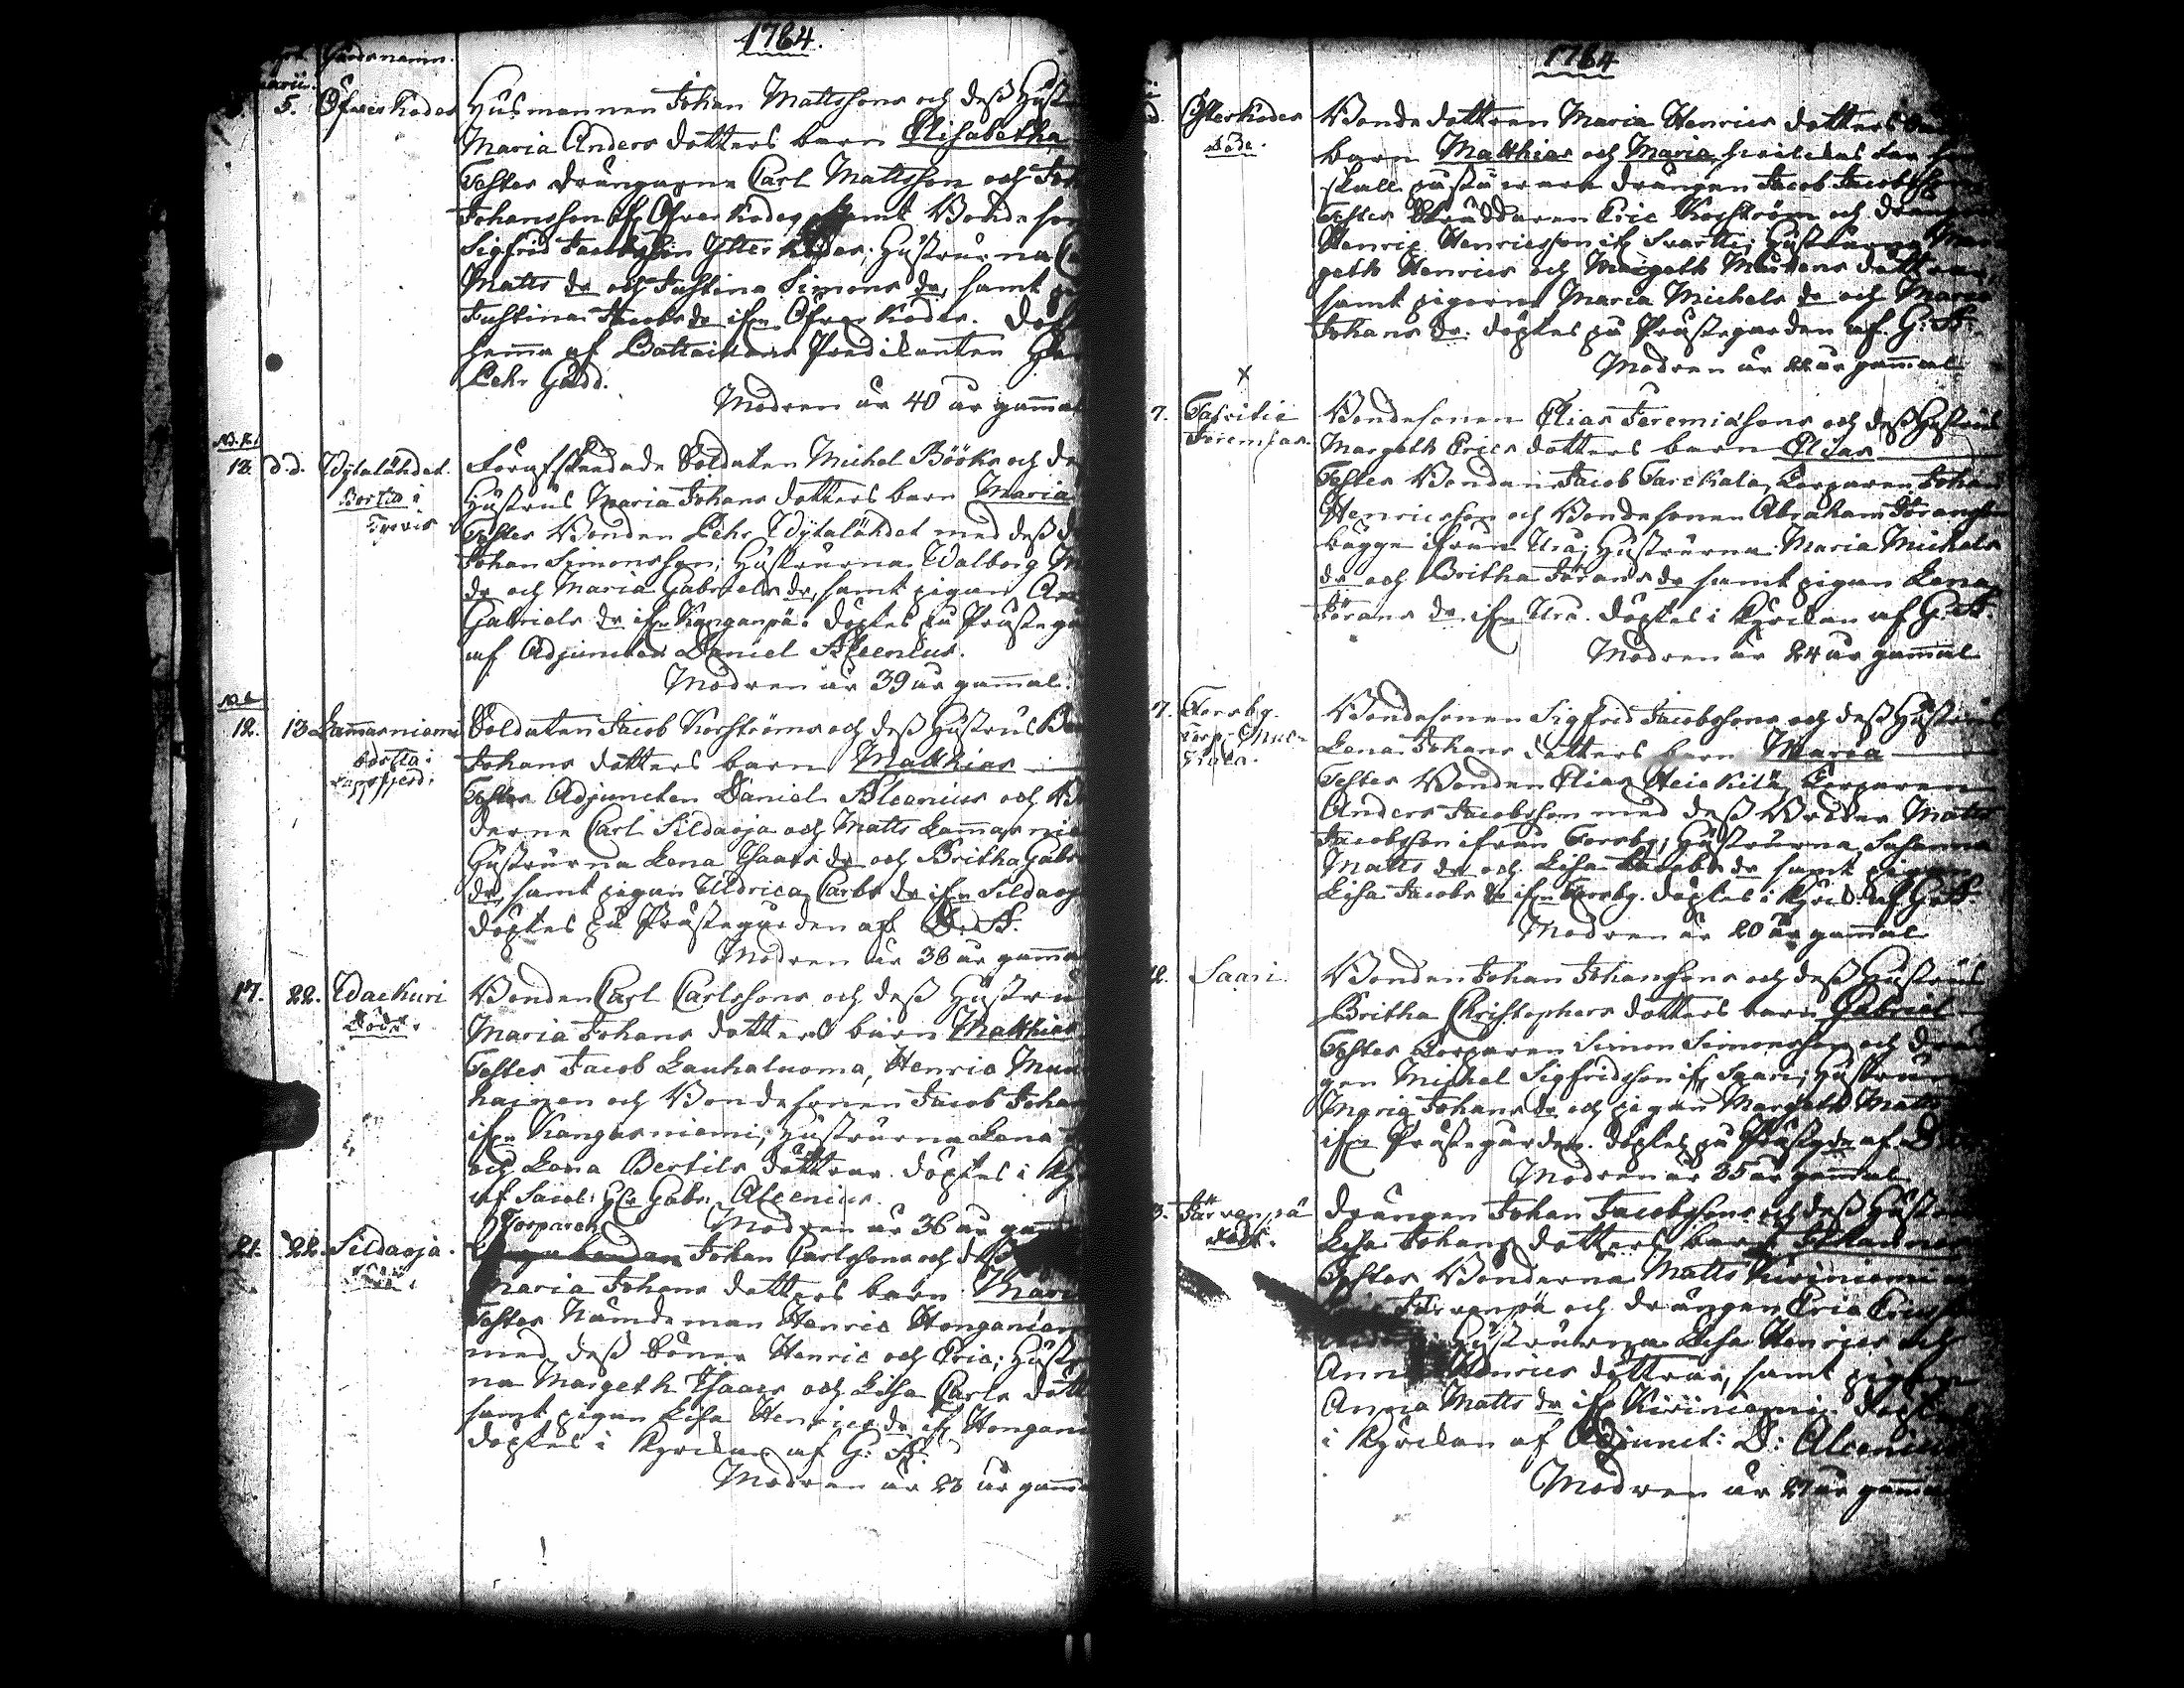 1764.
Gårdsnamn.
5. Öfwerkodes Husmannen Johan Mattssons och dess Hust
Maria Anders dotters barn Elisabetha
Testes drängarne Carl Mattsson och Joh
Johansson ifr Öfwerkodes samt Bondeson
Sigfrid Jacobsson Ytterkodes; Hustrurna
Matts dr och Justina Simons dr, samt
Justina Jacobs dr ifrn Öfwerkodes. Döp
hemma af Bataillons Predikanten
Pehr Gadd.
Modren är 40 år gammal
13. d.d. Wytalähdet. Förafskedade Soldaten Michel Bööks och de
Bortta i Hustrus Maria Johans dotters barn Maria
Testes Bonden Pehr Wytalähdet med dess
Johan Simonsson; Hustrurna Walborg
dr och Maria Gabriels dr, samt pigan
Gabriels dr ifrn Kanganpä. döptes på Prästega
af Adjuncten Daniel Alcenius.
Modren är 39 år gammal.
12. 13. Lammasniemi Soldaten Jacob Korströms och dess Hustrus
bortta i Johans dotters barn Matthias
Lappfjerd. Testes Adjuncten Daniel Alcenius och
derne Carl Sildaoja och Matts Lammasnie
Hustrurna Lena Isaacs dr och Britha Gabr
dr, samt pigan Uldrica Carls dr ifrn Sildaoj
döptes på Prästegården af D. A.
Modren är 36 år gamma
17. 22. Wackuri Bonden Carl Carlssons och dess Hustru
Död. Maria Johans dotters barn Matthias
Testes Jacob Lauhaluoma, Henric
hainen och Bondesonen Jacob Johan
ifrn Kangasniemi; Hustrurna Lena
och Lena Bertils döttrar. döptes i
af Sacel: Hr Gabr: Alcenius.
Modren är 36 år gam
21. 22. Sildaoja. Torparen Johan Carlssons och dess
Maria Johans dotters barn Mari
Testes Nämdeman Henric Honganiem
med dess Söner Henric och Eric; Hust
na Margeth Isaacs och Lisa Carls dött
samt pigan Lisa Henrics dr ifr Hongani
döptes i Kyrckan af G: A.
Modren är 23 år gamma
1764
Ytterkodes Bondedottren Maria Henrics dotters
Död. barn Matthias och Maria, hwilckas far
skall påstås wara drängen Jacob Jacobsson
Testes Skräddaren Eric Korström och drängen
Henric Henricsson ifr Svartti; Hustrurna Mar
geth Henrics och Margeth Mårtens döttrar,
samt pigorna Maria Michels dr och Maria
Johans dr. döptes på Prästegården af G: A:
Modren är 22 år gammal
x
7. Bondesonen Elias Jeremiæsons och dess Hustrus
Jeremias. Margeth Erics dotters barn Elias
Testes Bonden Jacob Jarckala, Torparen Johan
Henricsson och Bondesonen Abraham
bägge ifrån Ura; Hustrurna Maria Michels
dr och Britha Jörans dr samt pigan Lena
Jörans dr ifrn Ura. döptes i Kyrckan af G: A.
Modren är 24 år gammal
7. Forsby. Bondesonen Sigfrid Jacobssons och dess Hustrus
Lena Johans dotters barn Maria
Testes Bonden Elias Heickilä, Torparen
Anders Jacobsson med dess Broder Matts
Jacobsson ifrån Forsby; Hustrurna Susanna
Matts dr och Lisa Jacobs dr samt pigan
Lisa Jacobs dr ifrn Forsby. döptes i Kyrck: af G: A.
Modren är 20 år gammal
Saari. Bonden Johan Johanssons och dess Hustrus
Britha Christophers dotters barn Gabriel
Testes Torparen Simon Simonsson och drän
gen Michel Sigfridsson ifr Saari; Hustrun
Maria Johans dr och pigan Margeth Matts
ifrn Prästegården. döptes på Prästgdn af D
Modren är 35 år gammal
Järvenpä drängen Johan Jacobssons och dess Hustrus
Död. Lisa Johans dotters barn Johannes
Testes Bonderna Matts Kiriniemi
Järvenpä och drängen Eric Erics
Hustrurna Lisa Henrics och
Anna Henrics döttrar, samt pigan
Anna Matts dr ifr Kiriniemi. döptes
i Kyrckan af Adjunct: D: Alcenius
Modren är 27 år gammal